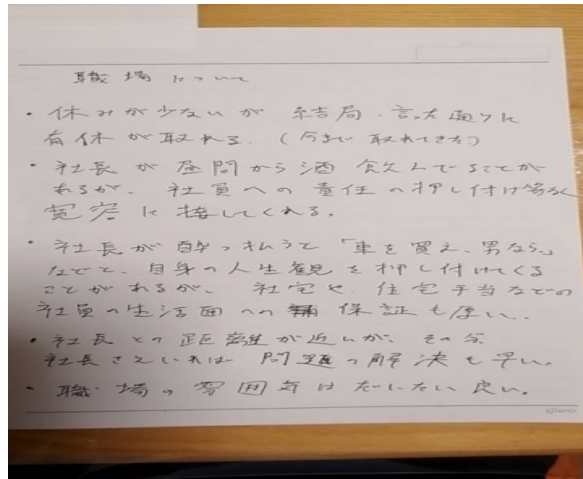 職場について
・休みが少ないが 結局、言った通りに
有休が取れる。(今まで取れてきた)
・社長が昼間から酒飲んでることが
あるが、社員への責任の押し付け等なく
寛容に接してくれる。
・社長が酔っ払うと「車を買え、男なら」
などと、自身の人生観を押し付けてくる
ことがあるが、社宅や住宅手当などの
社員の生活面への保証も厚い。
・社長との距離が近いが、その分
社長さえいれば 問題の解決も早い。
・職場の雰囲気はだいたい良い。